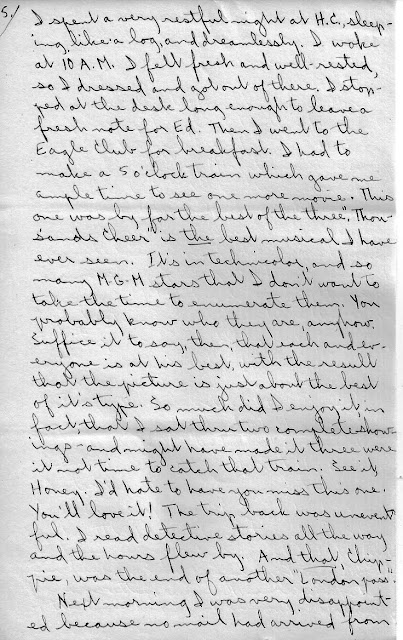 5./
I spent a very restful night at H.C., sleep-
ing, like a log, and dreamlessly. I woke
at 10 A.M. I felt fresh and well-rested,
so I dressed and got out of there. I stop-
ped at the desk long enough to leave a
fresh note for Ed. Then I went to the
Eagle Club for breakfast. I had to
make a 5 o'clock train which gave me
ample time to see one more movie. This
one was by far the best of the three. "Thou-
sands Cheer" is the best musical I have
ever seen. It's in technicolor, and so
many M.G.M stars that I don't want to
take the time to enumerate them. You
probably know who they are, anyhow.
Suffice it to say, then, that each and ev-
eryone is at his best, with the result
that the picture is just about the best
of it's type. So much did I enjoy it in
fact, that I sat thru two complete show-
ings - and might have made it three were
it not time to catch that train. See it,
Honey. I'd hate to have you miss this one.
You'll love it! The trip back was unevent-
ful. I read detective stories all the way
and the hours flew by. And that, Chip-
pie, was the end of another "London pass".
Next morning I was very disappoint-
ed because no mail had arrived from